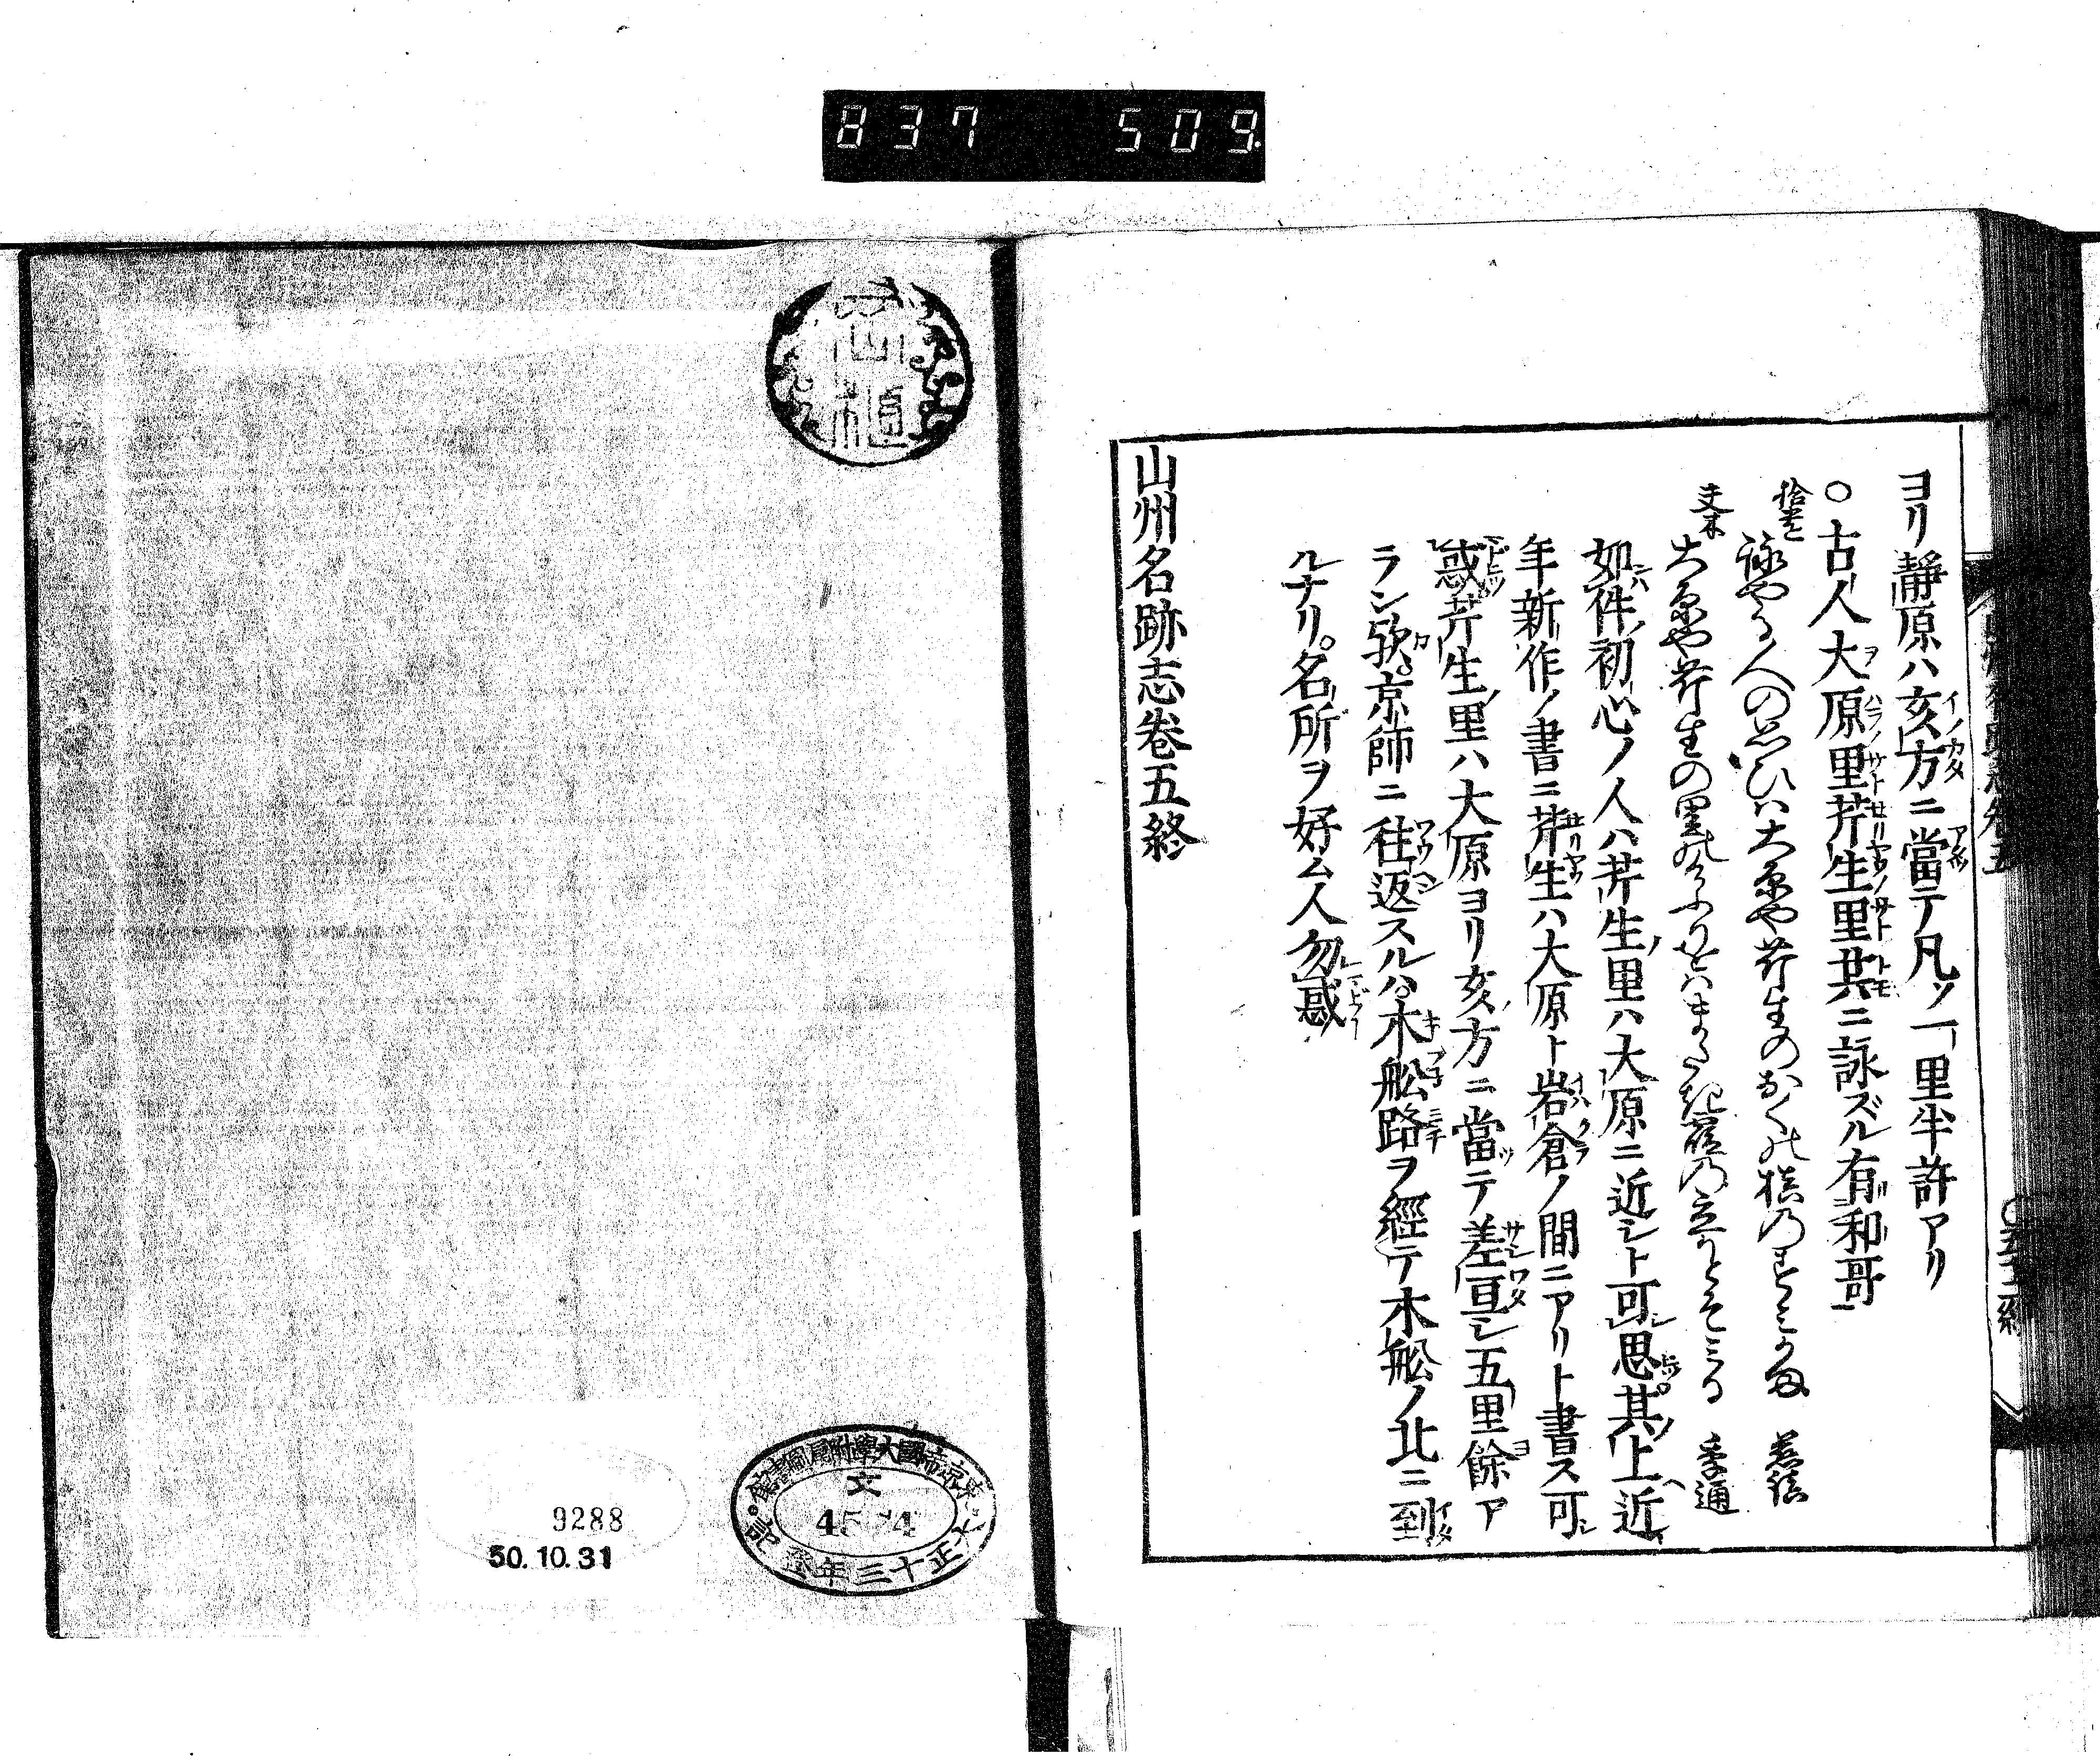 837 509
ヨリ靜原ハ亥方ニ當テ凡ソ一里半許アリ
○古人大原里芹生里共ニ詠ズル有和哥
詠やる人の思ひハ大原や芹生のおくの
大原や芹生の里の
如件初心ノ人ハ芹生里ハ大原ニ近シト可思其上近
年新作ノ書ニ芹生ハ大原ト岩倉ノ間ニアリト書ス可
惑芹生里ハ大原ヨリ亥方ニ當テ差亘シ五里餘ア
ラン歟京師ニ往返スルハ木舩路ヲ經テ木舩ノ北ニ到
ルナリ。名所ヲ好ム人勿惑
山州名跡志卷五終
東京帝國大學附屬圖書館
文
4574
大正十三年登記
9288
50.10.31